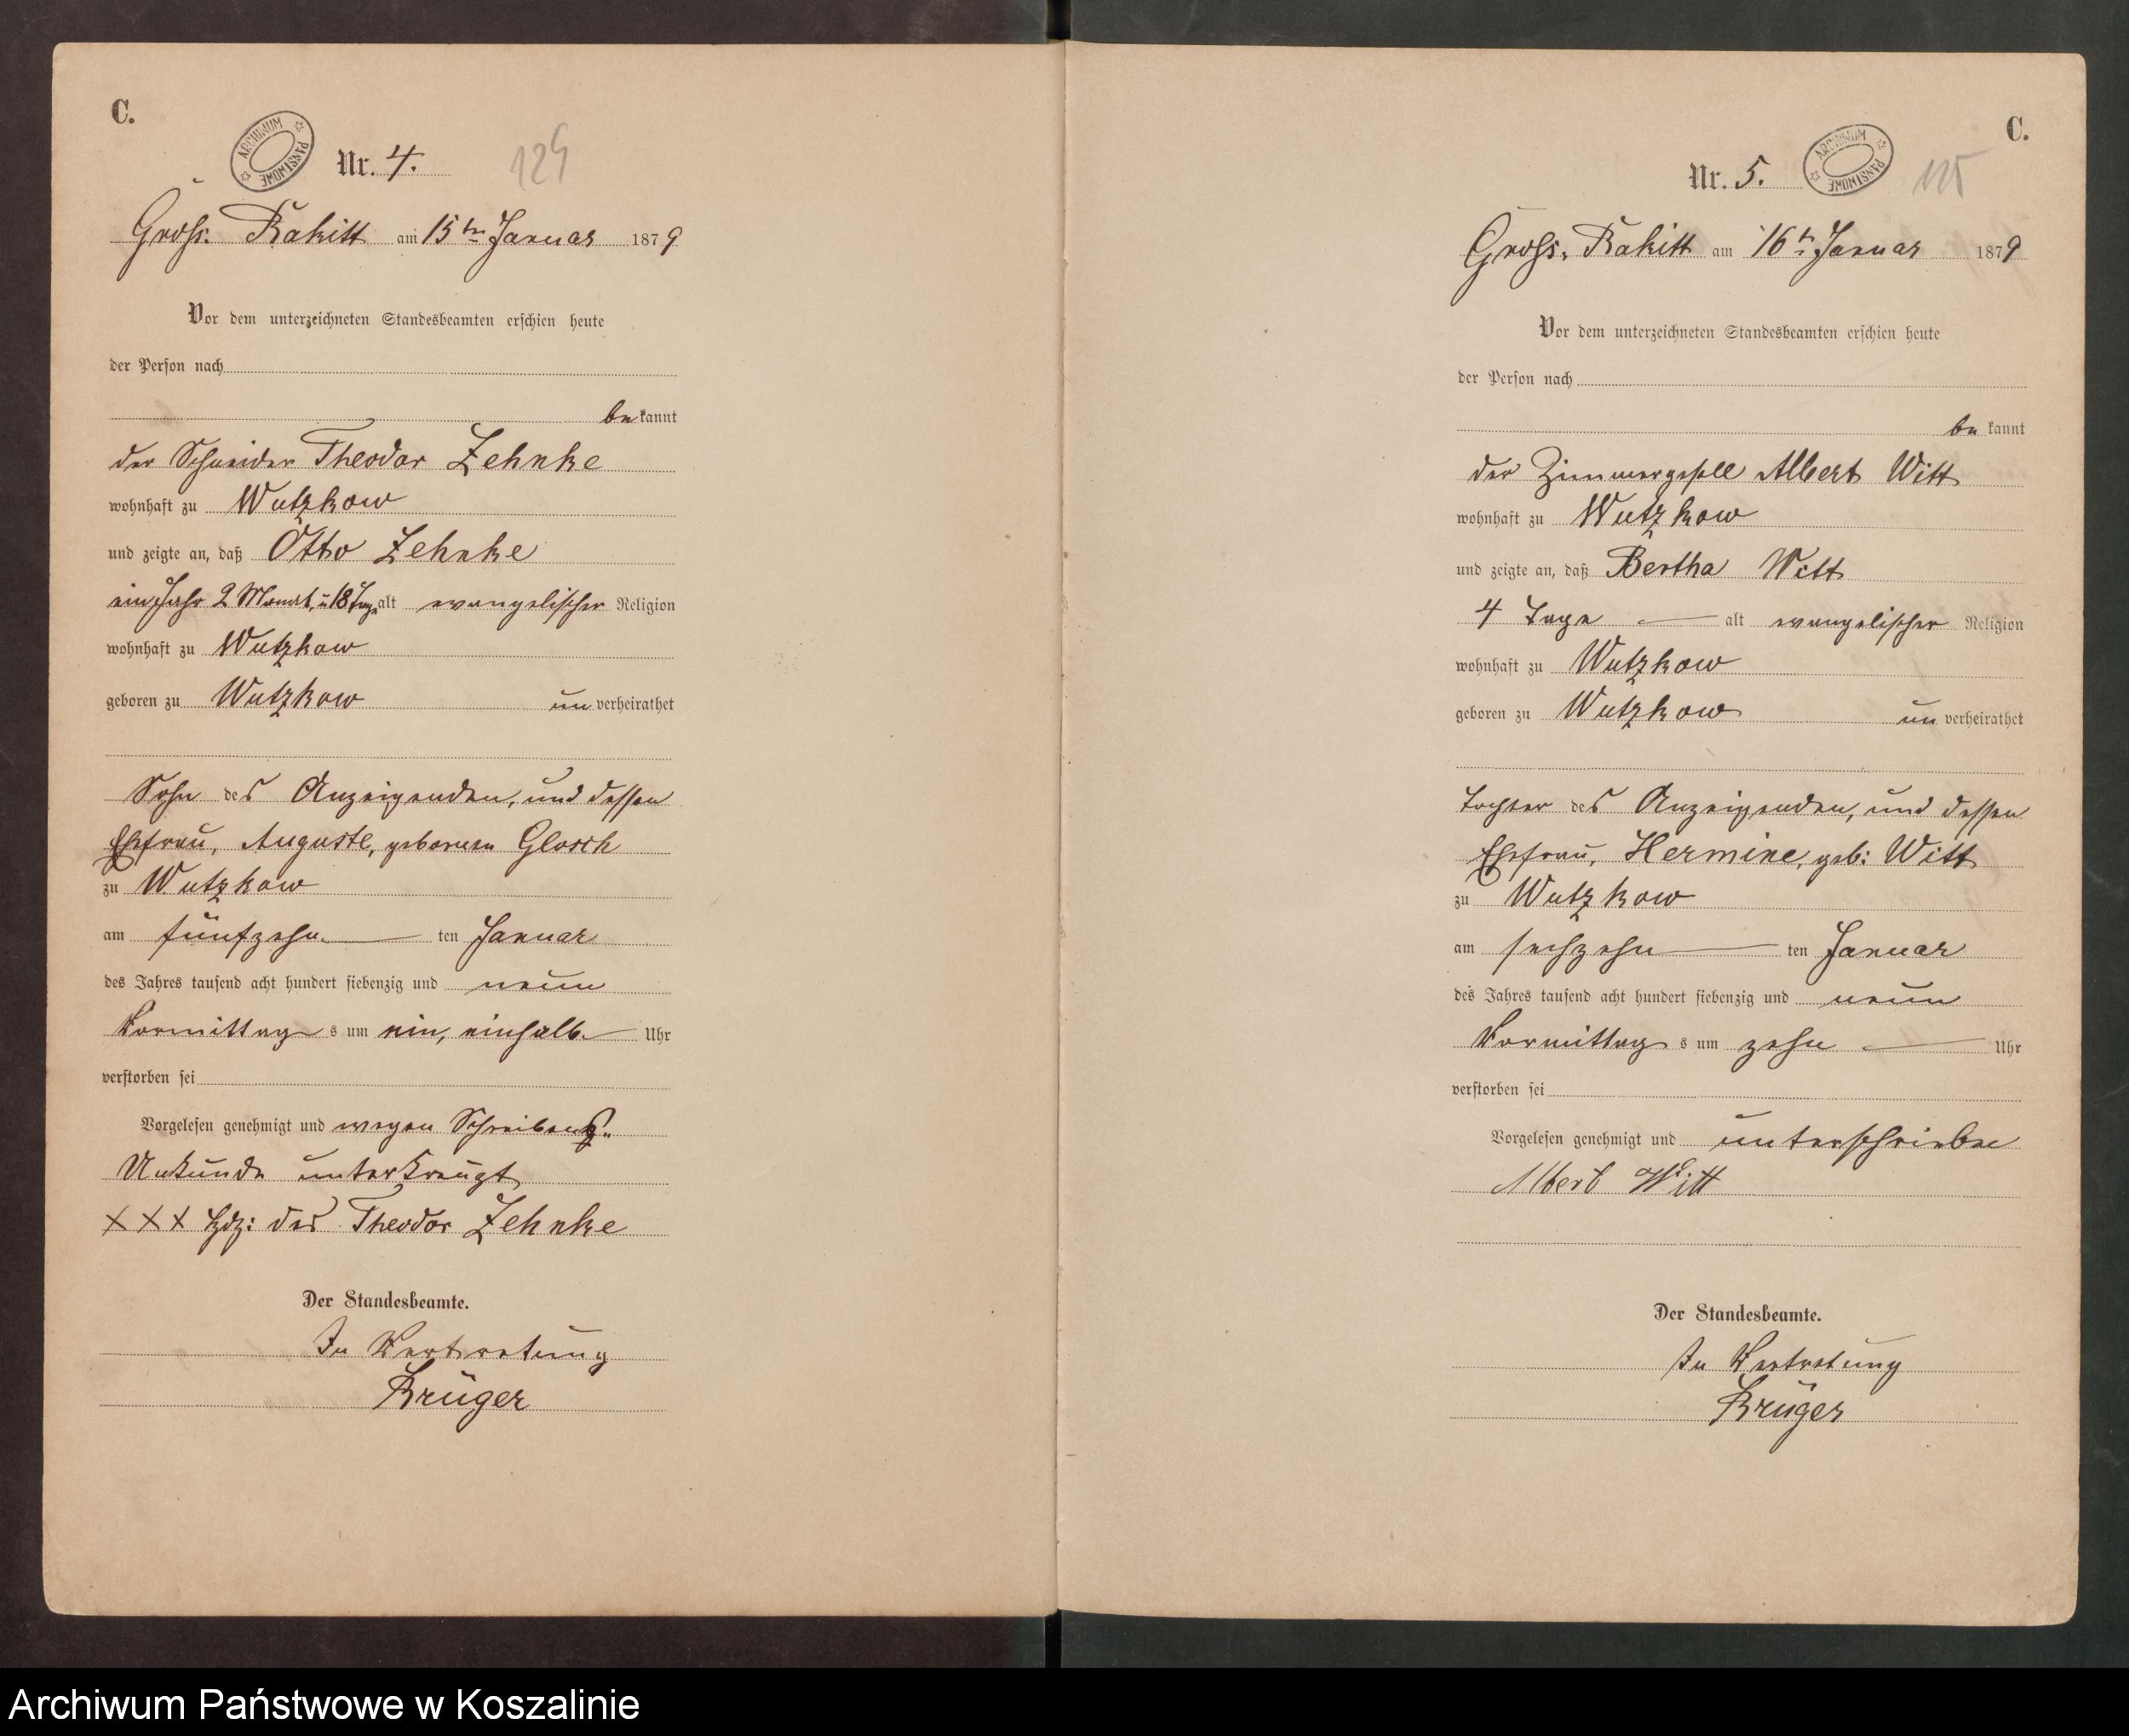 C.
ARCHIWUM PAŃSTWOWE
Nr. 4.
124
Gross. Rakitt am 15ten Januar 1879
Vor dem unterzeichneten Standesbeamten erschien heute
der Person nach
bekannt
der Schneider Theodor Zehnke
wohnhaft zu Wutzkow
und zeigte an, daß Otto Zehnke
ein Jahr 2 Monat, u 18 Tage alt evangelischer Religion
wohnhaft zu Wutzkow
geboren zu Wutzkow unverheirathet
Sohn des Anzeigenden, und dessen
Ehefrau, Auguste, geborenen
zu Wutzkow
am fünfzehn ten Januar
des Jahres tausend acht hundert siebenzig und neun
Vormittags um ein, einhalb Uhr
verstorben sei
Vorgelesen genehmigt und wegen Schreibens
Unkunde unterkreuzt
XXX Hdz: des Theodor Zehnke
Der Standesbeamte.
In Vertretung
Krüger
C.
ARCHIWUM PAŃSTWOWE
Nr. 5.
125
Gross. Rakitt am 16t Januar 1879
Vor dem unterzeichneten Standesbeamten erschien heute
der Person nach
bekannt
der Zimmergesell Albert Witt
wohnhaft zu Wutzkow
und zeigte an, daß Bertha Witt
4 Tage alt evangelischer Religion
wohnhaft zu Wutzkow
geboren zu Wutzkow unverheirathet
Tochter des Anzeigenden, und dessen
Ehefrau, Hermine, geb: Witt
zu Wutzkow
am sechzehn ten Januar
des Jahres tausend acht hundert siebenzig und neun
Vormittags um zehn Uhr
verstorben sei
Vorgelesen genehmigt und unterschrieben
Albert Witt
Der Standesbeamte.
In Vertretung
Krüger
Archiwum Państwowe w Koszalinie